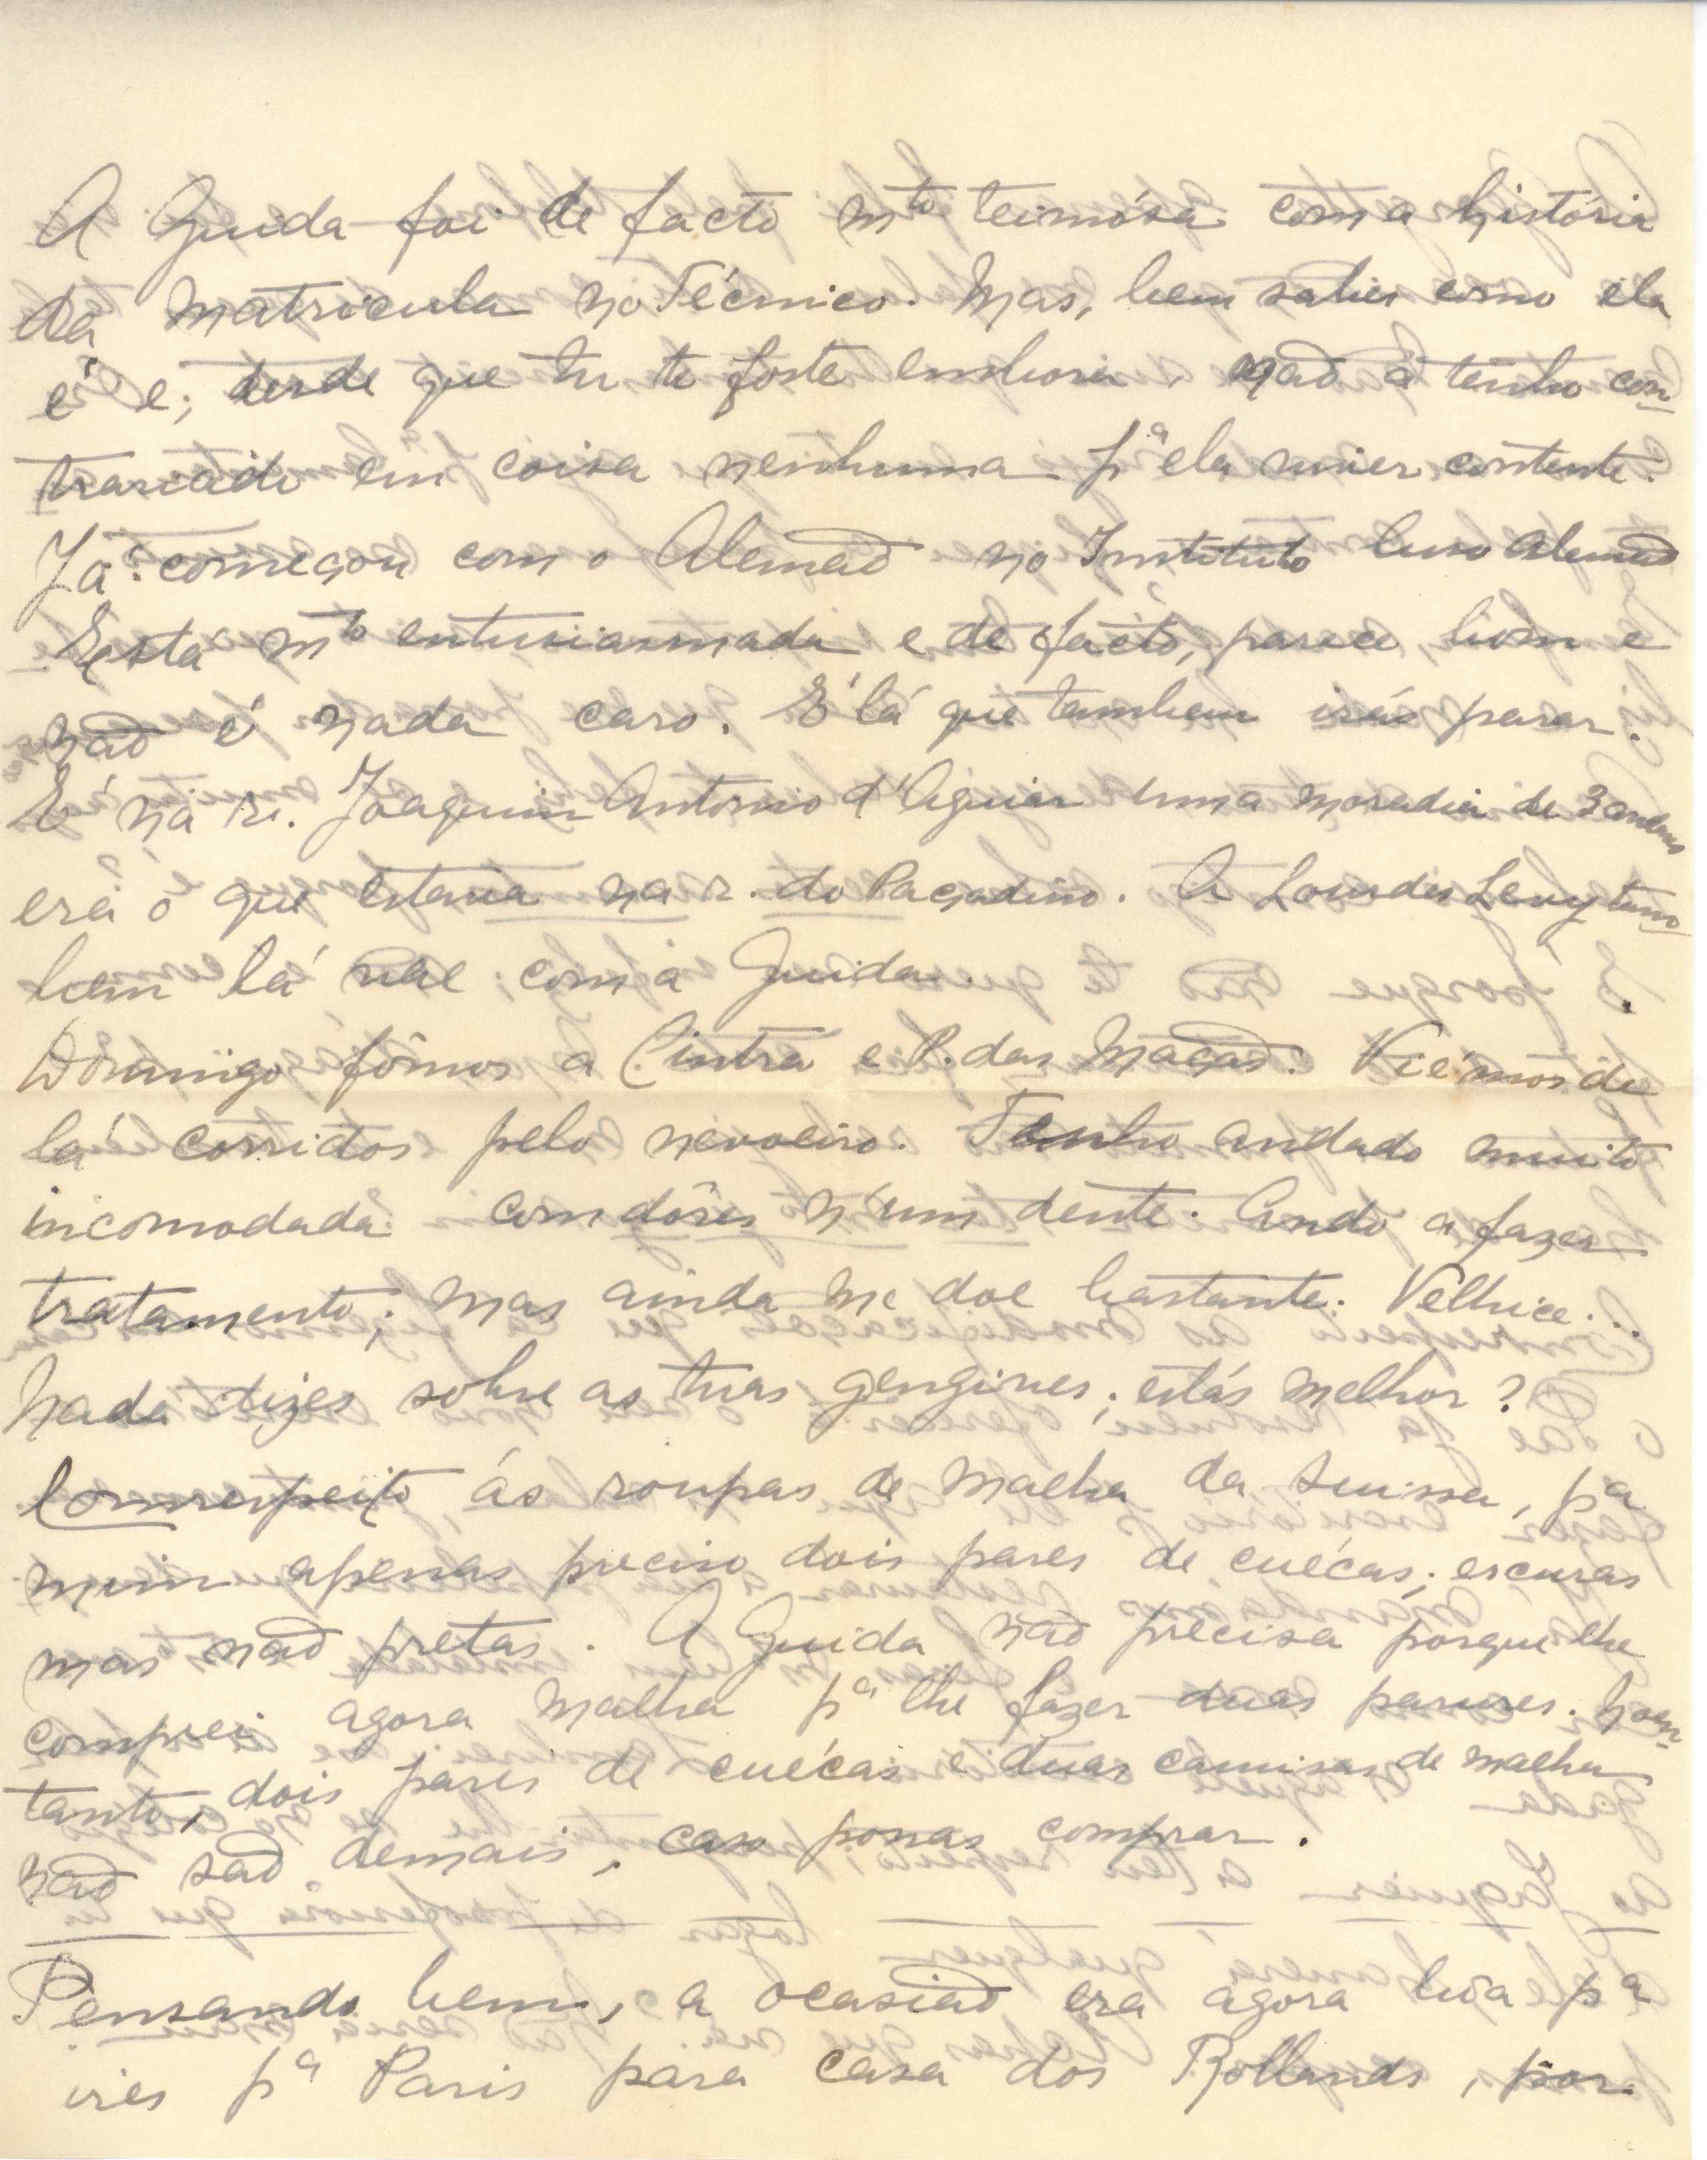 A Guida foi de facto mto teimósa com a história
da matricula no Técnico. Mas, bem sabes como ela
é e, desde que tu te foste embora, não a tenho con-
trariado em coisa nenhuma pª ela viver contente.
Já começou com o Alemão no Instituto Luso Alemão
Está mto entusiasmada e de facto, parece bom e
não é nada caro. É lá que tambem irás parar.
É na r. Joaquim Antonio d'Aguiar numa moradia de 3 andares
era o que estava na r. do Passadiço. A Lourdes Levy tam-
bem lá vae com a Guida.
Domingo fômos a Cintra e P. das Maçãs. Viémos de
lá corridos pelo nevoeiro. Tenho andado muito
incomodada com dôres n'um dente. Ando a fazer
tratamento; mas ainda me doe bastante. Velhice...
Nada dizes sobre as tuas gengives; estás melhor?
Com respeito ás roupas de malha da Suissa, pª
mim apenas preciso dois pares de cuécas; escuras
mas não pretas. A Guida não precisa porque lhe
comprei agora malha pª lhe fazer duas parures. No en-
tanto, dois pares de cuécas e duas camisas de malha
não são demais, caso possas comprar.
Pensando bem, a ocasião era agora bôa pª
ires pª Paris para casa dos Rollands, por-